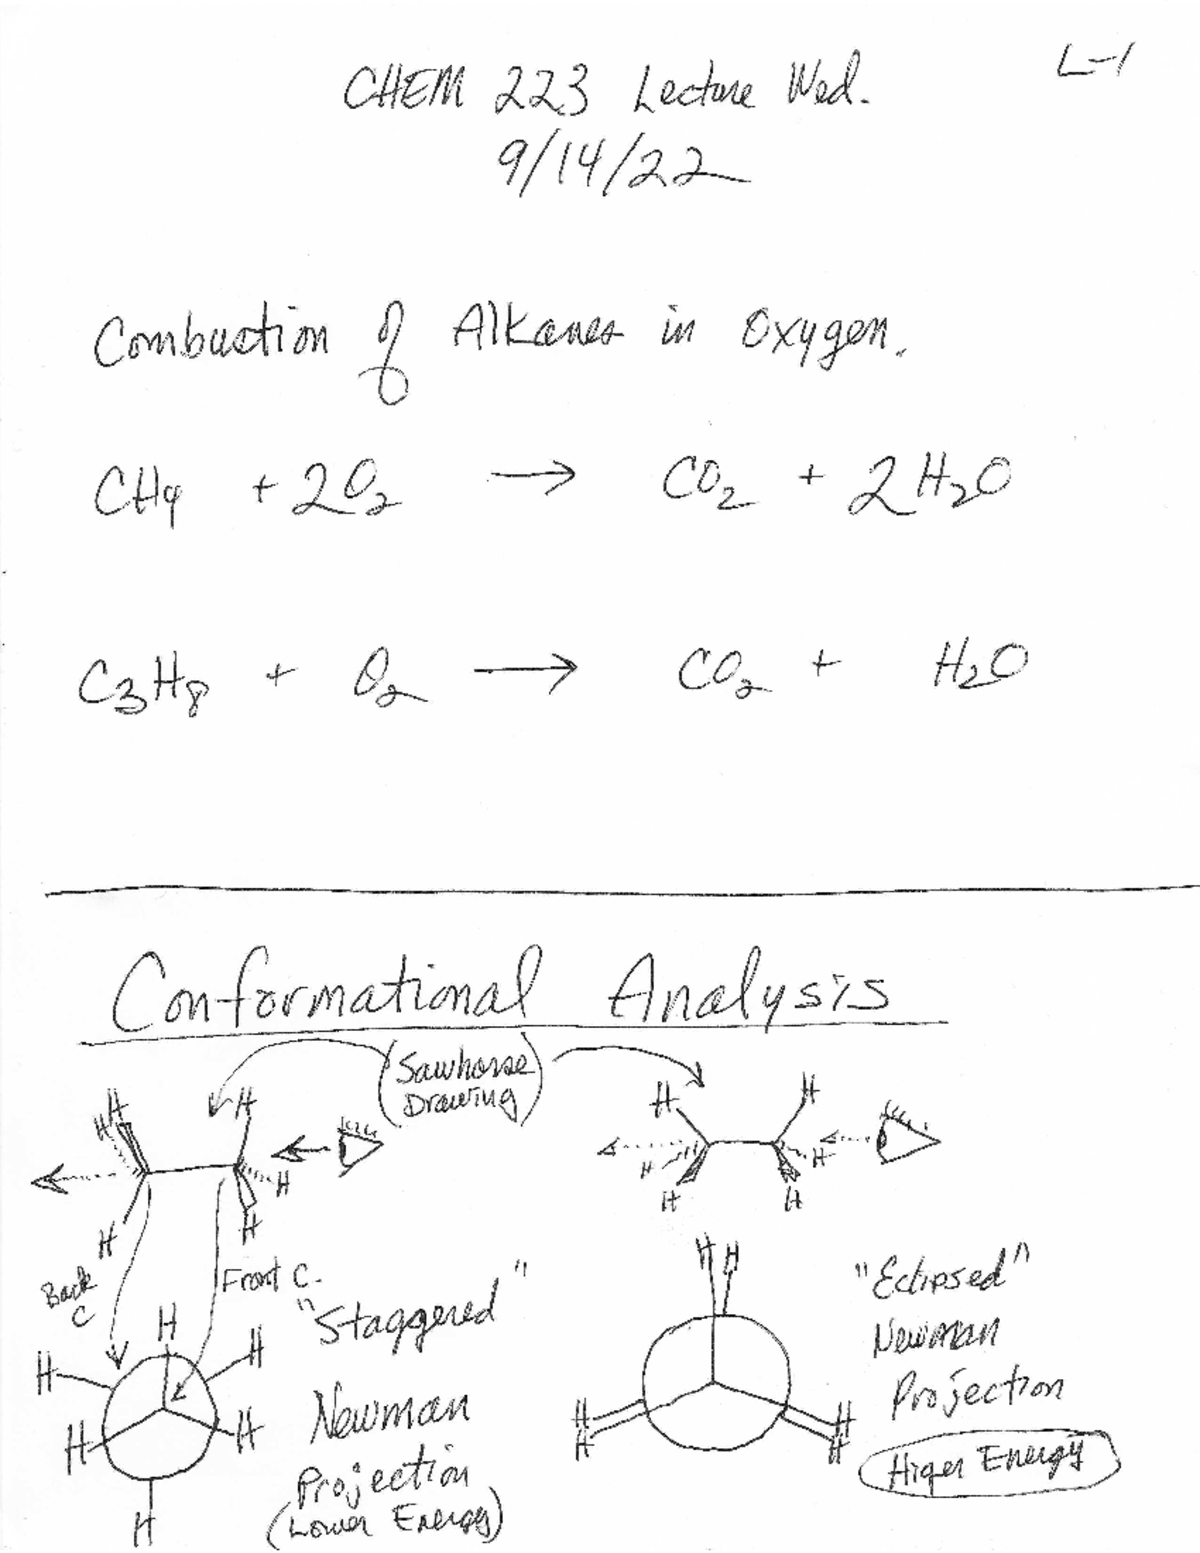 L-1
CHEM 223 Lecture Wed.
9/14/22
Combustion of Alkanes in Oxygen.
CH4 + 2O2 → CO2 + 2H2O
C3H8 + O2 → CO2 + H2O
Conformational Analysis
(Sawhorse
Drawing)
H H H H H H
H H H H H H
Back
C
Front C.
"Staggered"
Newman
Projection
(Lower Energy)
H H H H H H
"Eclipsed"
Newman
Projection
Higer Energy
H H H H H H